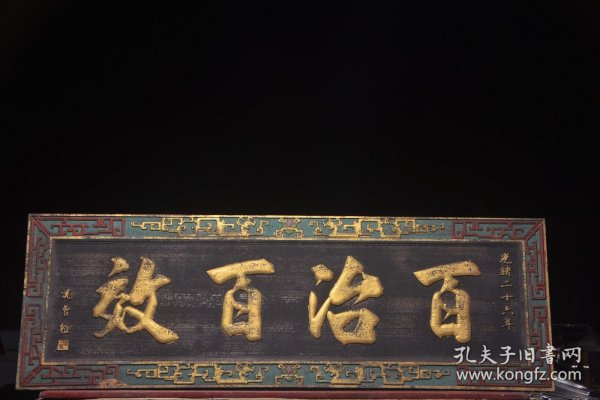 光緒二十六年
百治百效
孔夫子旧書网
www.kongfz.com